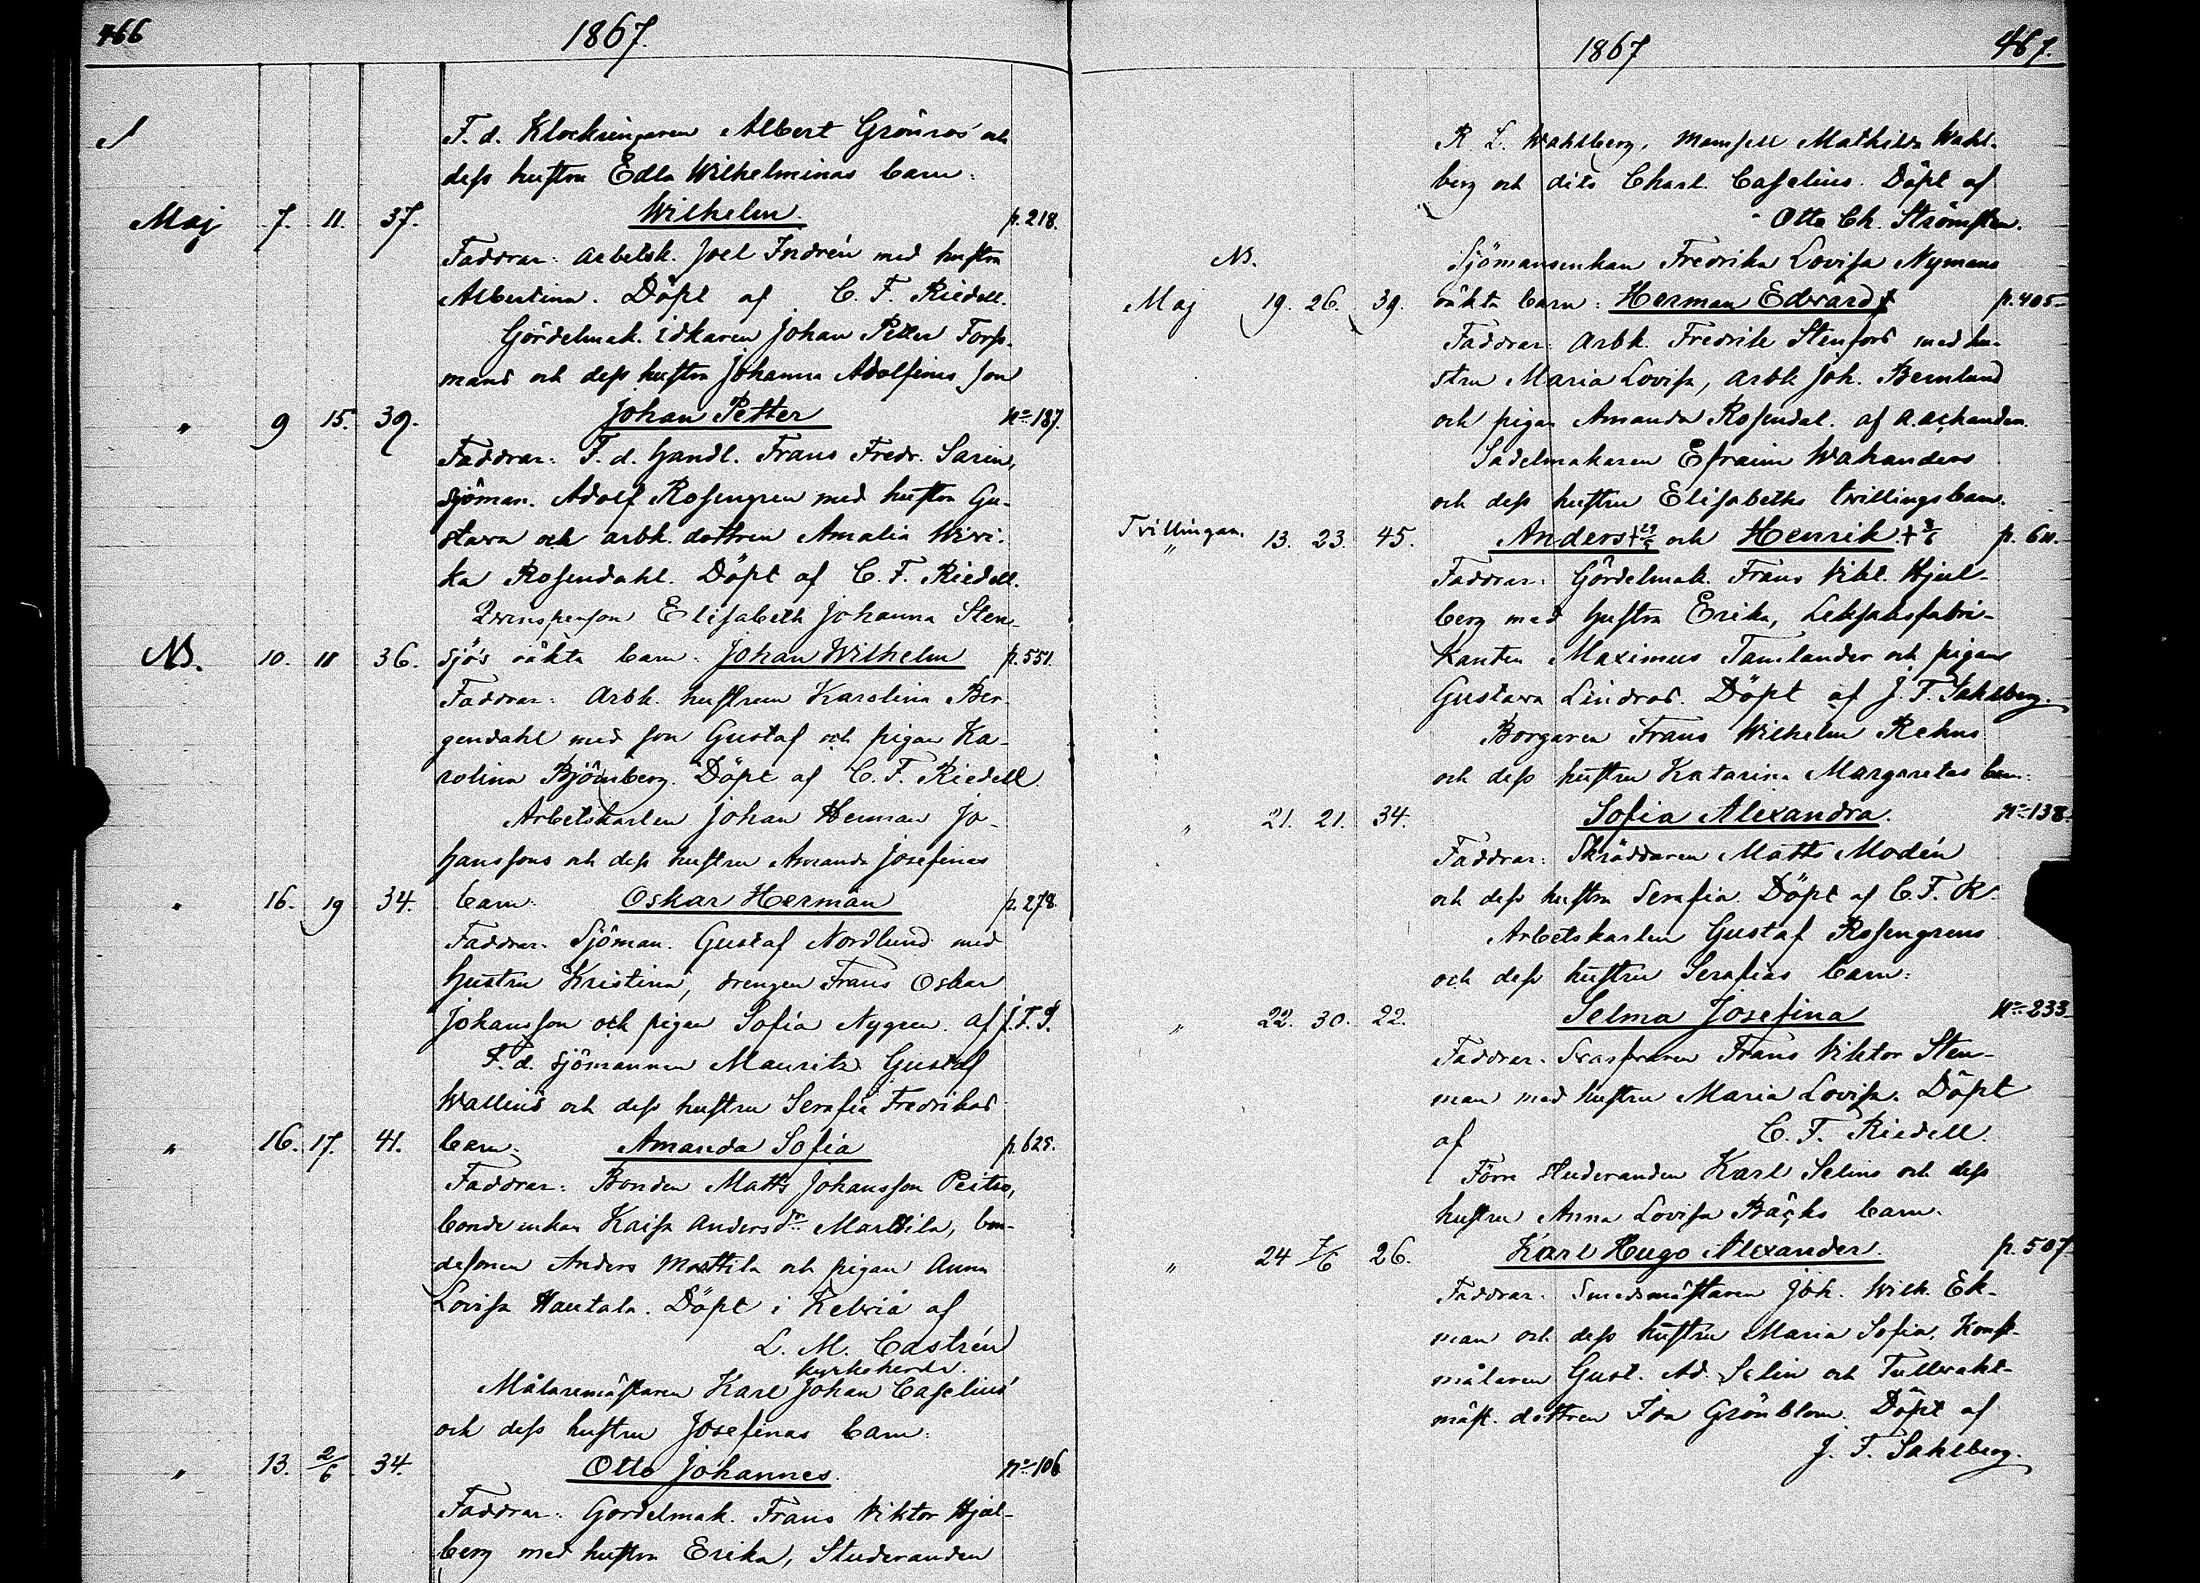 466 1867.
F. d. Klockringaren Albert Grönroos och
dess hustru Edla Wilhelminas barn:
Maj 7. 11. 37. Wilhelm. p. 218.
Faddrar: arbetsk. Joel Indrén med hustru
Albertina. Döpt af C. F. Riedell.
Gördelmak. idkaren Johan Petter Forss-
mans och dess hustru Johanna Adolfinas son
" 9 15. 39. Johan Petter No 187.
Faddrar: F. d. Handl. Frans Fredr. Sarin,
Sjöman. Adolf Rosengren med hustru Gu-
stava och arbk. dottren Amalia Wivi-
ka Rosendahl. Döpt af C. F. Riedell.
Qvinsperson Elisabeth Johanna Sten-
NB. 10. 18 36. sjös oäkta barn: Johan Wilhelm p. 551.
Faddrar: Arbk. hustrun Karolina Ber-
gendahl med son Gustaf och pigan Ka-
rolina Björnberg. Döpt af C. F. Riedell.
Arbetskarlen Johan Herman Jo-
hanssons och dess hustru Amanda Josefinas
" 16. 19 34. barn: Oskar Herman p. 278.
Faddrar: Sjöman. Gustaf Nordlund med
hustru Kristina, drengen Frans Oskar
Johansson och pigan Sofia Nygren. af J. F. S.
F. d. sjömannen Mauritz Gustaf
Wallins och dess hustru Serafia Fredrikas
" 16. 17. 41. barn: Amanda Sofia p. 625.
Faddrar: Bonden Matts Johansson Peitso,
bonde enkan Kaisa Andersdr Marttila, bon-
desonen Anders Marttila och pigan Anna
Lovisa Hautala. Döpt i Kelviå af
L. M. Castrén
kyrkoherde.
Målaremästaren Karl Johan Caselius'
och dess hustru Josefinas barn:
" 13. 2/6 34. Otto Johannes. No 106
Faddrar: Gördelmak. Frans Viktor Hjul-
berg med hustru Erika, Studeranden
1867 467.
R. L. Wahlberg, Mamsell Mathilda Wahl-
berg och dito Charl. Caselius. Döpt af
Otto Ch. Strömsten.
NB. Sjömansenkan Fredrika Lovisa Nymans
Maj 19. 26. 39. oäkta barn: Herman Edvard p. 405
Faddrar: Arbk. Fredrik Stenfors med hu-
stru Maria Lovisa, arbk Joh. Bernlund
och pigan Amanda Rosendal. af
Sadelmakaren Efraim Wahanders
och dess hustru Elisabeths tvillingsbarn.
Tvillingar. " 13. 23. 45. Anders + 29/5 och Henrik. + p. 611.
Faddrar: Gördelmak. Frans Vikt. Hjul-
berg med hustru Erika, Leksaksfabri-
kanten Maximus Tamlander och pigan
Gustava Lindros. Döpt af J. F. Sahlberg.
Borgaren Frans Wilhelm Rehns
och dess hustru Katarina Margaretas barn:
" 21. 21. 34. Sofia Alexandra. No 138.
Faddrar: Skräddaren Matts Modén
och dess hustru Serafia. Döpt af C. F. R.
Arbetskarlen Gustaf Rosengrens
och dess hustru Serafias barn:
" 22. 30. 22. Selma Josefina No 233
Faddrar: Svarfvaren Frans Viktor Sten-
man med hustru Maria Lovisa. Döpt
af C. F. Riedell.
Förre studeranden Karl Selins och dess
hustru Anna Lovisa Bäcks barn.
" 24 7/6 26. Karl Hugo Alexander. p. 507
Faddrar: Smedsmästaren Joh. Wilh. Ek-
man och dess hustru Maria Sofia, Konst-
målaren Gust. Ad. Selin och Tullvakt-
mäst. dottren Ida Grönblom. Döpt af
J. F. Sahlberg.